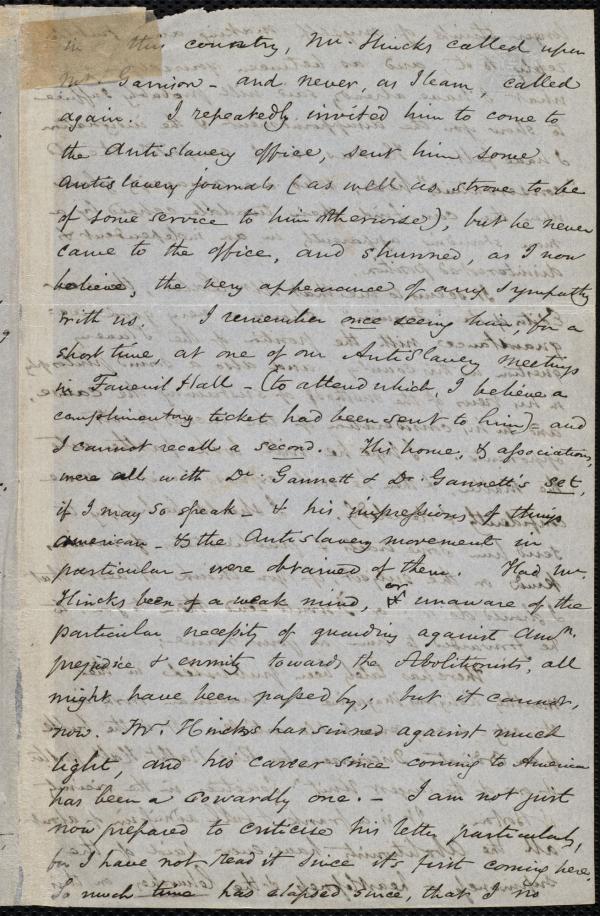 in this country, Mr. Hincks called upon
Mr. Garrison - and never, as I learn, called
again. I repeatedly invited him to come to
the Antislavery office, sent him some
Antislavery journals (as well as strove to be
of some service to him otherwise), but he never
came to the office, and shunned, as I now
believe, the very appearance of any sympathy
with us. I remember once seeing him, for a
short time, at one of our Antislavery meetings
in Faneuil Hall - (to attend which, I believe a
complimentary ticket had been sent to him) - and
I cannot recall a second. His home, & associations,
were all with Dr. Gannett & Dr. Gannett's set,
if I may so speak - & his impressions of things
American - & the Antislavery movement in
particular - were obtained of them. Had Mr.
Hincks been of a weak mind, or unaware of the
particular necessity of guarding against Amn.
prejudice & enmity towards the Abolitionists, all
might have been passed by, but it cannot,
now. Mr. Hincks has sinned against much
light, and his career since coming to America
has been a cowardly one. - I am not just
now prepared to criticise his letter particularly,
for I have not read it since its first coming here.
So much time has elapsed since, that I no